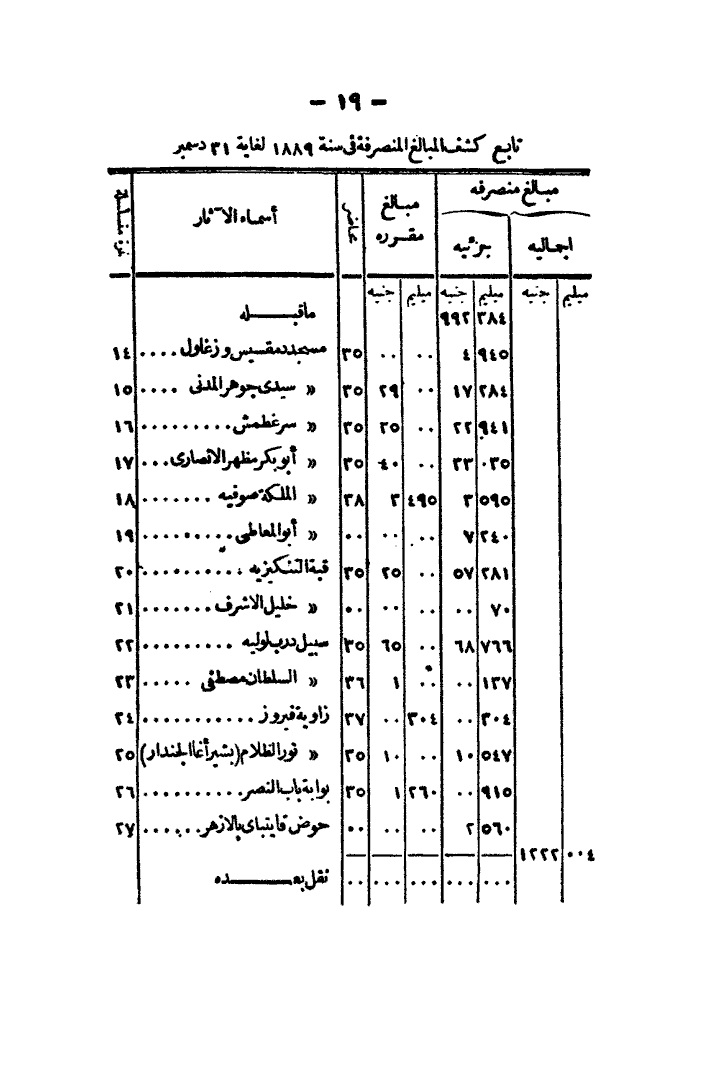 - ١٩ -
تابع كشف المبالغ المنصرفة فى سنة ١٨٨٩ لغاية ٣١ دسمبر
مبالغ منصرفه
مبالغ مقرره
محاضر
أسماء الآثار
نمرة مسلسلة
اجماليه
جزئيه
مليم جنيه مليم جنيه مليم جنيه
٣٨٤ ٩٩٢ ماقبـــله
٩٤٥ ٤ .. .. ٣٥ مسجد دمقسيس وزغلول .... ١٤
٢٨٤ ١٧ .. ٢٩ ٣٥ » سيدى جوهر المدنى .... ١٥
٩٤١ ٢٢ .. ٢٥ ٣٥ » سرغطمش ......... ١٦
٠٣٥ ٣٣ .. ٤٠ ٣٥ » أبو بكر مظهر الانصارى ... ١٧
٥٩٥ ٣ ٤٩٥ ٣ ٣٨ » الملكة صوفيه ....... ١٨
٢٤٠ ٧ .. .. .. » أبو المعاطى ......... ١٩
٢٨١ ٥٧ .. ٢٥ ٣٥ قبة التنكيزيه .......... ٢٠
٧٠ .. .. .. .. » خليل الاشرف ....... ٢١
٧٦٦ ٦٨ .. ٦٥ ٣٥ سبيل درب لوليه ......... ٢٢
١٣٧ .. .. ١ ٣٦ » السلطان مصطفى ..... ٢٣
٣٠٤ .. ٣٠٤ .. ٣٧ زاوية فيروز ........... ٢٤
٥٤٧ ١٠ .. ١٠ ٣٥ » نور الظلام (بشير أغا الجندار) ٢٥
٩١٥ .. ٢٦٠ ١ ٣٥ بوابة باب النصر .......... ٢٦
٥٦٠ ٢ .. .. .. حوض قايتباى بالازهر ...... ٢٧
٠٠٤ ١٢٢٢
... ... ... ... .. نقل بعـــده